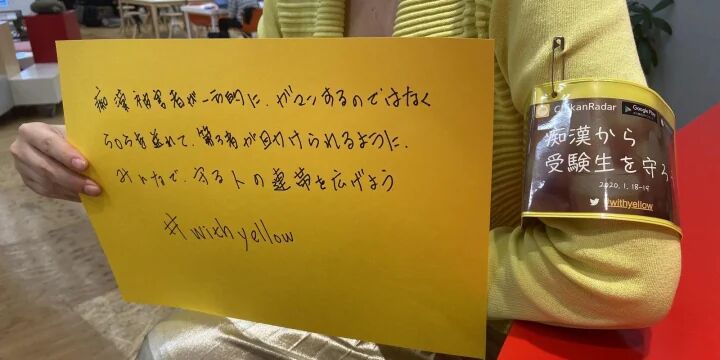 痴漢被害者が一方的に、ガマンするのではなく
SOSを、第3者が助けられるように、
みんなで、守る人の連帯を広げよう
#withyellow
ChikanRadar
Google Play
痴漢から
受験生を守ろ
2020.1.18-19
@withyellow